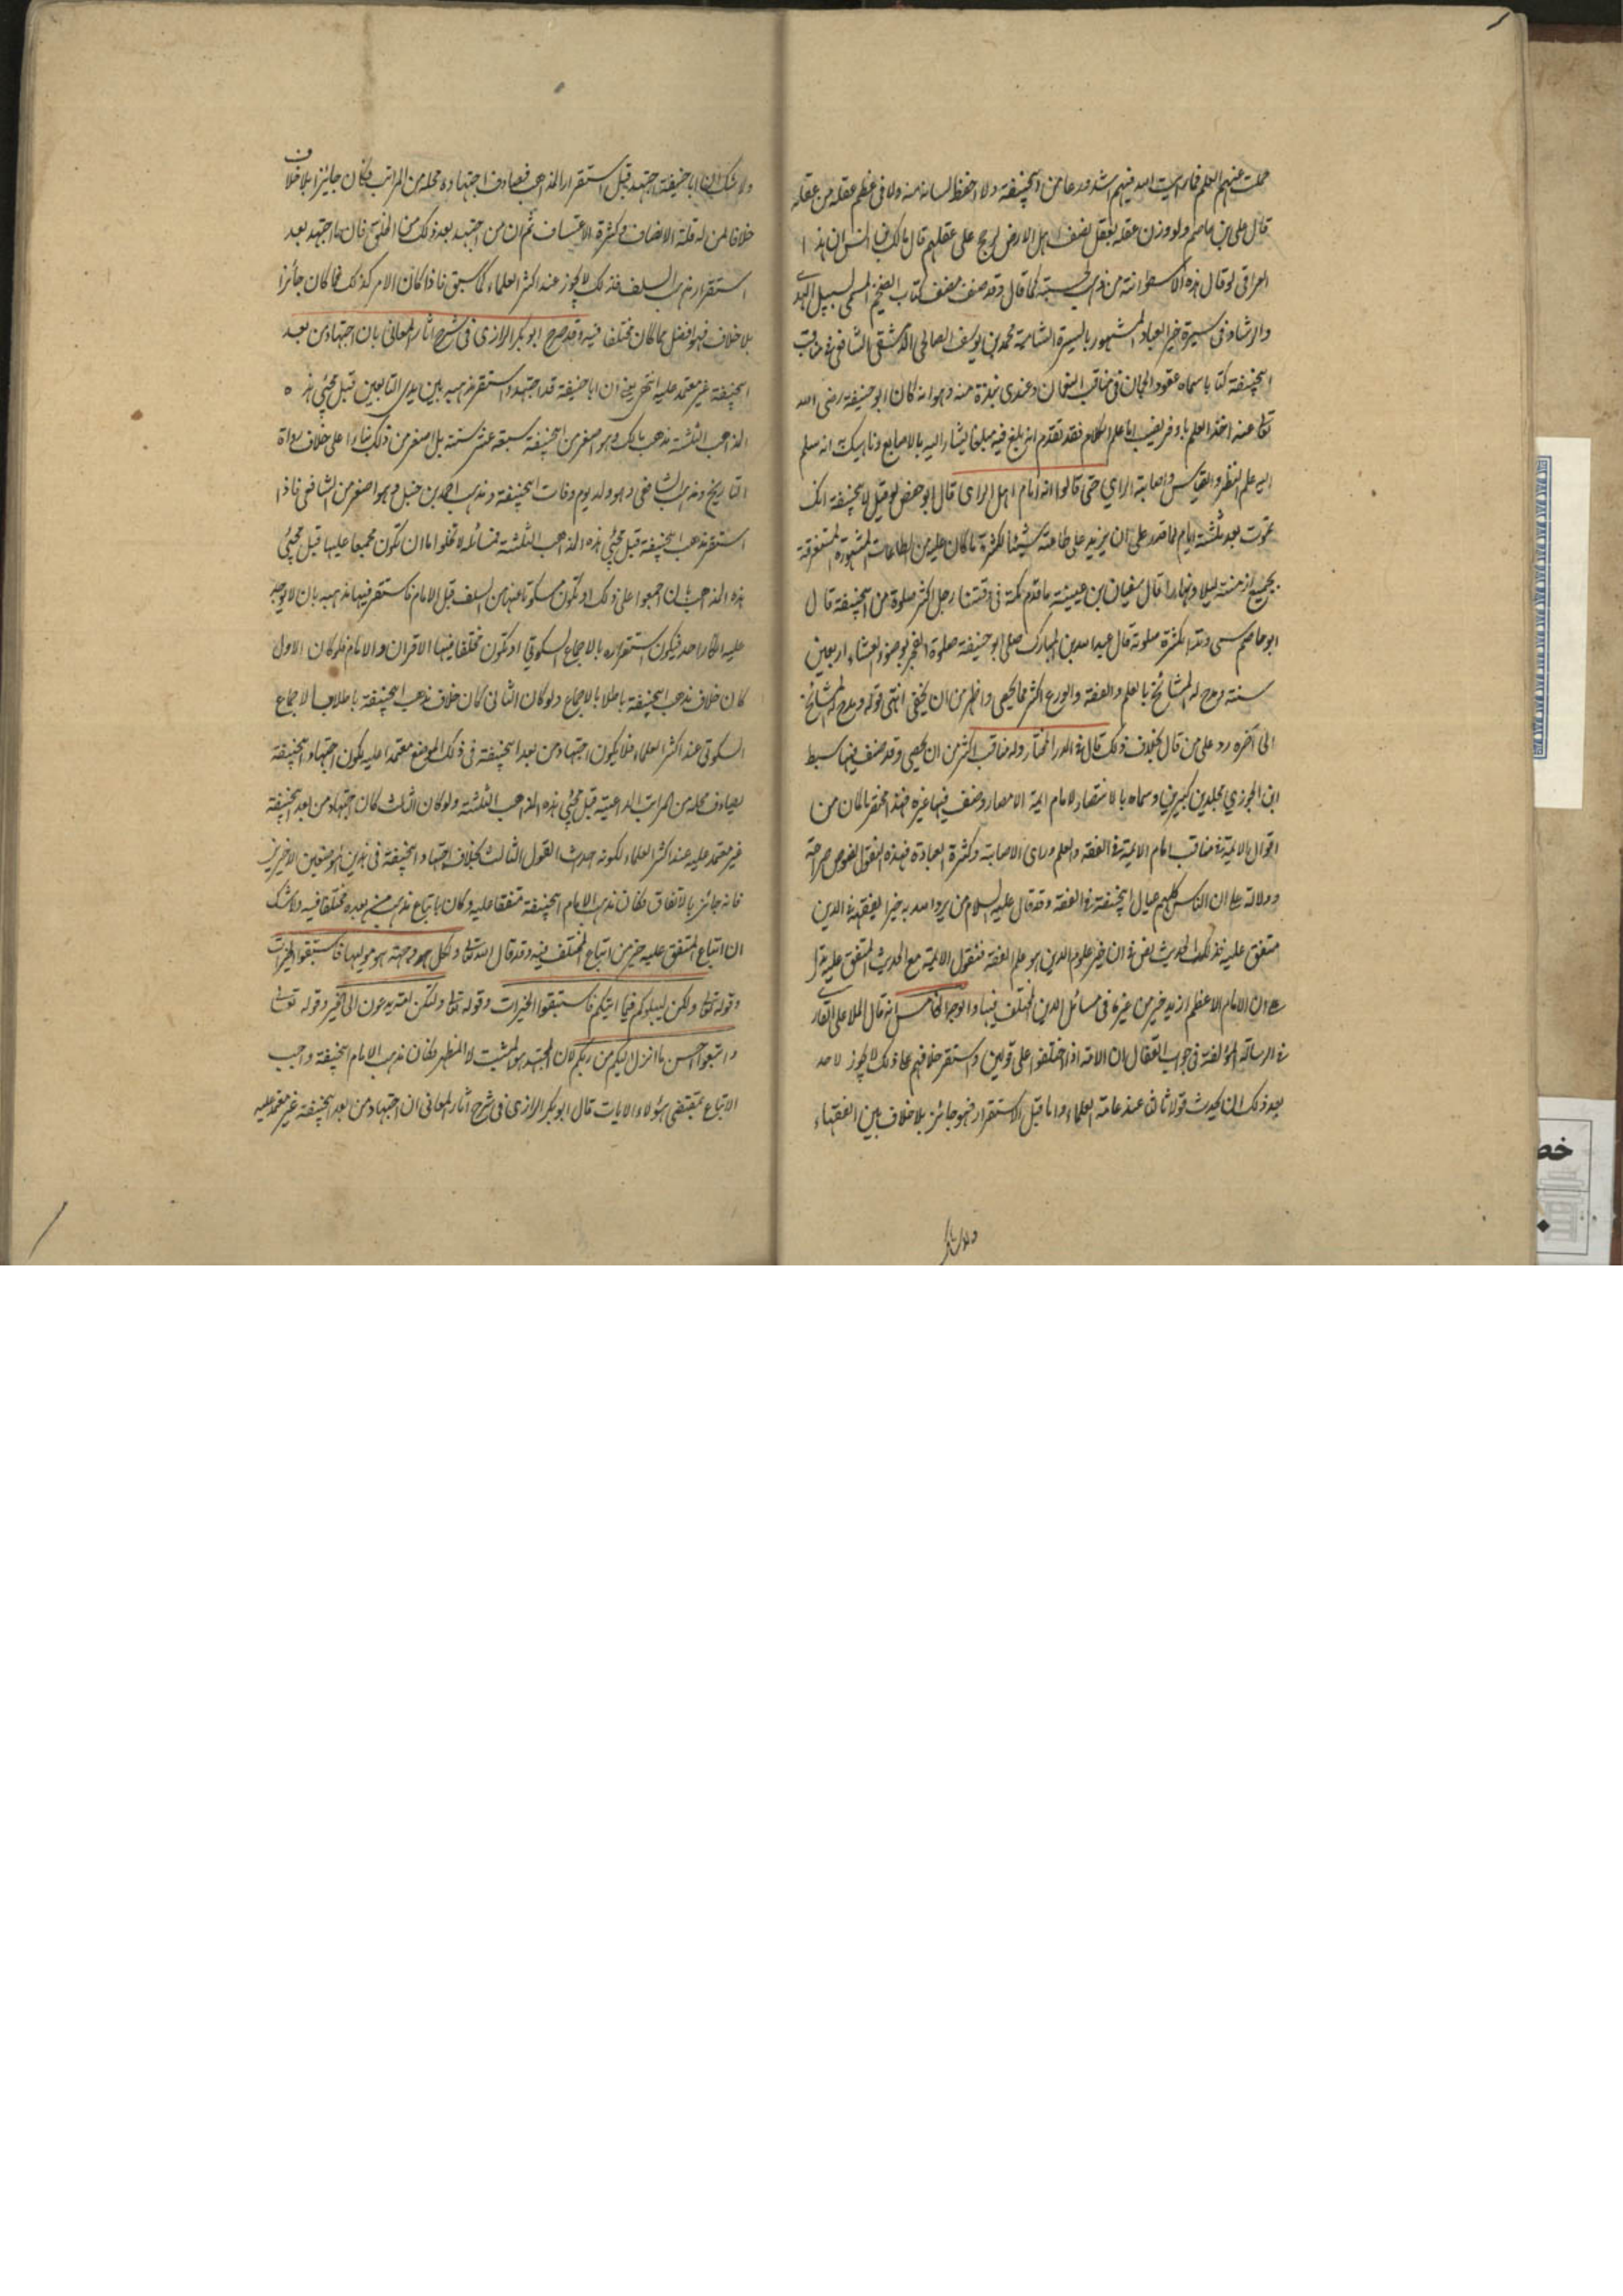 حملت عنهم العلم فما رأيت احد فيهم اشد ورعا من ابيحنيفة ولا احفظ لسانه منه ولا في عظم عقله من عقله
قال علي بن عاصم ولو وزن عقله بعقل نصف اهل الارض لرجح على عقلهم قال مالك بن انس ان هذا
العراقي لو قال هذه الاسطوانة من ذهب كما قال وقد صنف مصنف كتاب الضخيم المسمى لسبيل الهدى
والرشاد في سيرة خير العباد المشهور بالسيرة الشامية محمد بن يوسف الصالحي الدمشقي الشافعي في مناقب
ابيحنيفة كتابا سماه عقود الجمان في مناقب النعمان وعندي نبذة منه وهو انه كان ابو حنيفة رضي الله
تعالى عنه اخذ العلم اما علم الكلام فقد تقدم انه بلغ فيه مبلغا يشار اليه بالاصابع وناهيك انه سلم
اليه علم النظر والقياس واصابة الراي حتى قالوا انه امام اهل الراى قال ابو حفص لو قيل لابيحنيفة انك
تموت بعد ثلثة ايام لما قدر على ان يزيد على طاعته شيئا لكثرة ما كان عليه من الطاعات المشهورة المستغرقة
بجميع ازمنته ليلا ونهارا قال سفيان بن عيينة ما قدم مكة في وقتنا رجل اكثر صلوة من ابيحنيفة قال
ابو عاصم يسمى وتدا لكثرة صلوته قال عبد الله بن المبارك صلى ابو حنيفة صلوة الفجر بوضوء العشاء اربعين
سنة ومدح له المشائخ بالعلم والفقه والورع اكثر مما يحصى واظهر من ان يخفى انتهى قوله ومدح له المشائخ
الى آخره رد على من قال بخلاف ذلك قال في الدر المختار وله مناقب اكثر من ان يحصى وقد صنف فيها سبط
ابن الجوزي مجلدين كبيرين وسماه بالانتصار لامام ايمة الامصار وصنف فيها غيره فهذا مختصر ما كان من
اقوال الايمة في مناقب امام الايمة في الفقه والعلم وراى الاصابة وكثرة العبادة فهذه النقول نصوص صراحة
ودلالة على ان الناس كلهم عيال ابيحنيفة في الفقه وقد قال عليه السلام من يرد الله به خيرا يفقهه في الدين
متفق عليه فذلك الحديث نص في ان خير علوم الدين هو علم الفقه فنقول الايمة مع الحديث المتفق عليه تدل
على ان الامام الاعظم ازيد خير من غيره في مسائل الدين المختلف فيها والوجه الخامس انه قال الملا علي القاري
في الرسالة المؤلفة في جواب القفال ان الامة اذا اختلفوا على قولين واستقر خلافهم على ذلك لا يجوز لاحد
بعد ذلك ان يحدث قولا ثالثا عند عامة العلماء واما قبل الاستقرار فهو جائز بلا خلاف بين الفقهاء
ولا شك ان ابا حنيفة اجتهد قبل استقرار المذاهب فصادف اجتهاده محله من المراتب فكان جائزا بلا خلاف
خلافا لمن له قلة الانصاف وكثرة الاعتساف ثم ان من اجتهد بعد ذلك من الخلق فان ما اجتهد بعد
استقرار مذهب السلف فذلك لا يجوز عند اكثر العلماء كما سبق فاذا كان الامر كذلك فما كان جائزا
بلا خلاف فهو افضل مما كان مختلفا فيه وقد صرح ابو بكر الرازي في شرح اثار المعاني بان اجتهاد من بعد
ابيحنيفة غير معتمد عليه انتهى يعني ان ابا حنيفة قد اجتهد واستقر مذهبه بين ايدي التابعين قبل مجئي هذه
المذاهب الثلثة مذهب مالك وهو اصغر من ابيحنيفة سبعة عشر سنة بل اصغر من ذلك بناءا على خلاف رواة
التاريخ ومذهب الشافعي وهو ولد يوم وفات ابيحنيفة ومذهب احمد بن حنبل وهو اصغر من الشافعي فاذا
استقر مذهب ابيحنيفة قبل مجئي هذه المذاهب الثلثة فمسائله لا تخلوا اما ان تكون مجمعا عليها قبل مجئي
هذه المذاهب بان اجمعوا على ذلك او تكون مسكوتا عنها من السلف قبل الامام فاستقر فيها مذهبه بان لا يوجد
عليه انكار احد فيكون استقراره بالاجماع السكوتي او تكون مختلفا فيها الاقران والامام فلو كان الاول
كان خلاف مذهب ابيحنيفة باطلا بالاجماع ولو كان الثاني كان خلاف مذهب ابيحنيفة باطلا بالاجماع
السكوتي عند اكثر العلماء فلا يكون اجتهاد من بعد ابيحنيفة في ذلك الموضع معتمدا عليه لكون اجتهاد ابيحنيفة
يصادف محله من المراتب قبل مجئي هذه المذاهب الثلثة ولو كان الثالث كان اجتهاد من بعد ابيحنيفة
غير معتمد عليه عند اكثر العلماء لكونه احدث القول الثالث بخلاف اجتهاد ابيحنيفة في هذين الموضعين الاخيرين
فانه جائز بالاتفاق فكان مذهب الامام ابيحنيفة متفقا عليه وكان اتباع مذهب من بعده مختلفا فيه ولا شك
ان اتباع المتفق عليه خير من اتباع المختلف فيه وقد قال الله تعالى ولكل وجهة هو موليها فاستبقوا الخيرات
وقوله تعالى ولكن ليبلوكم فيما اتيكم فاستبقوا الخيرات وقوله تعالى ولتكن امة يدعون الى الخير وقوله تعالى
واتبعوا احسن ما انزل اليكم من ربكم لان المجتهد هو المثبت لا المظهر فكان مذهب الامام ابيحنيفة واجب
الاتباع بمقتضى هؤلاء الايات قال ابو بكر الرازي في شرح اثار المعاني ان اجتهاد من بعد ابيحنيفة غير معتمد عليه